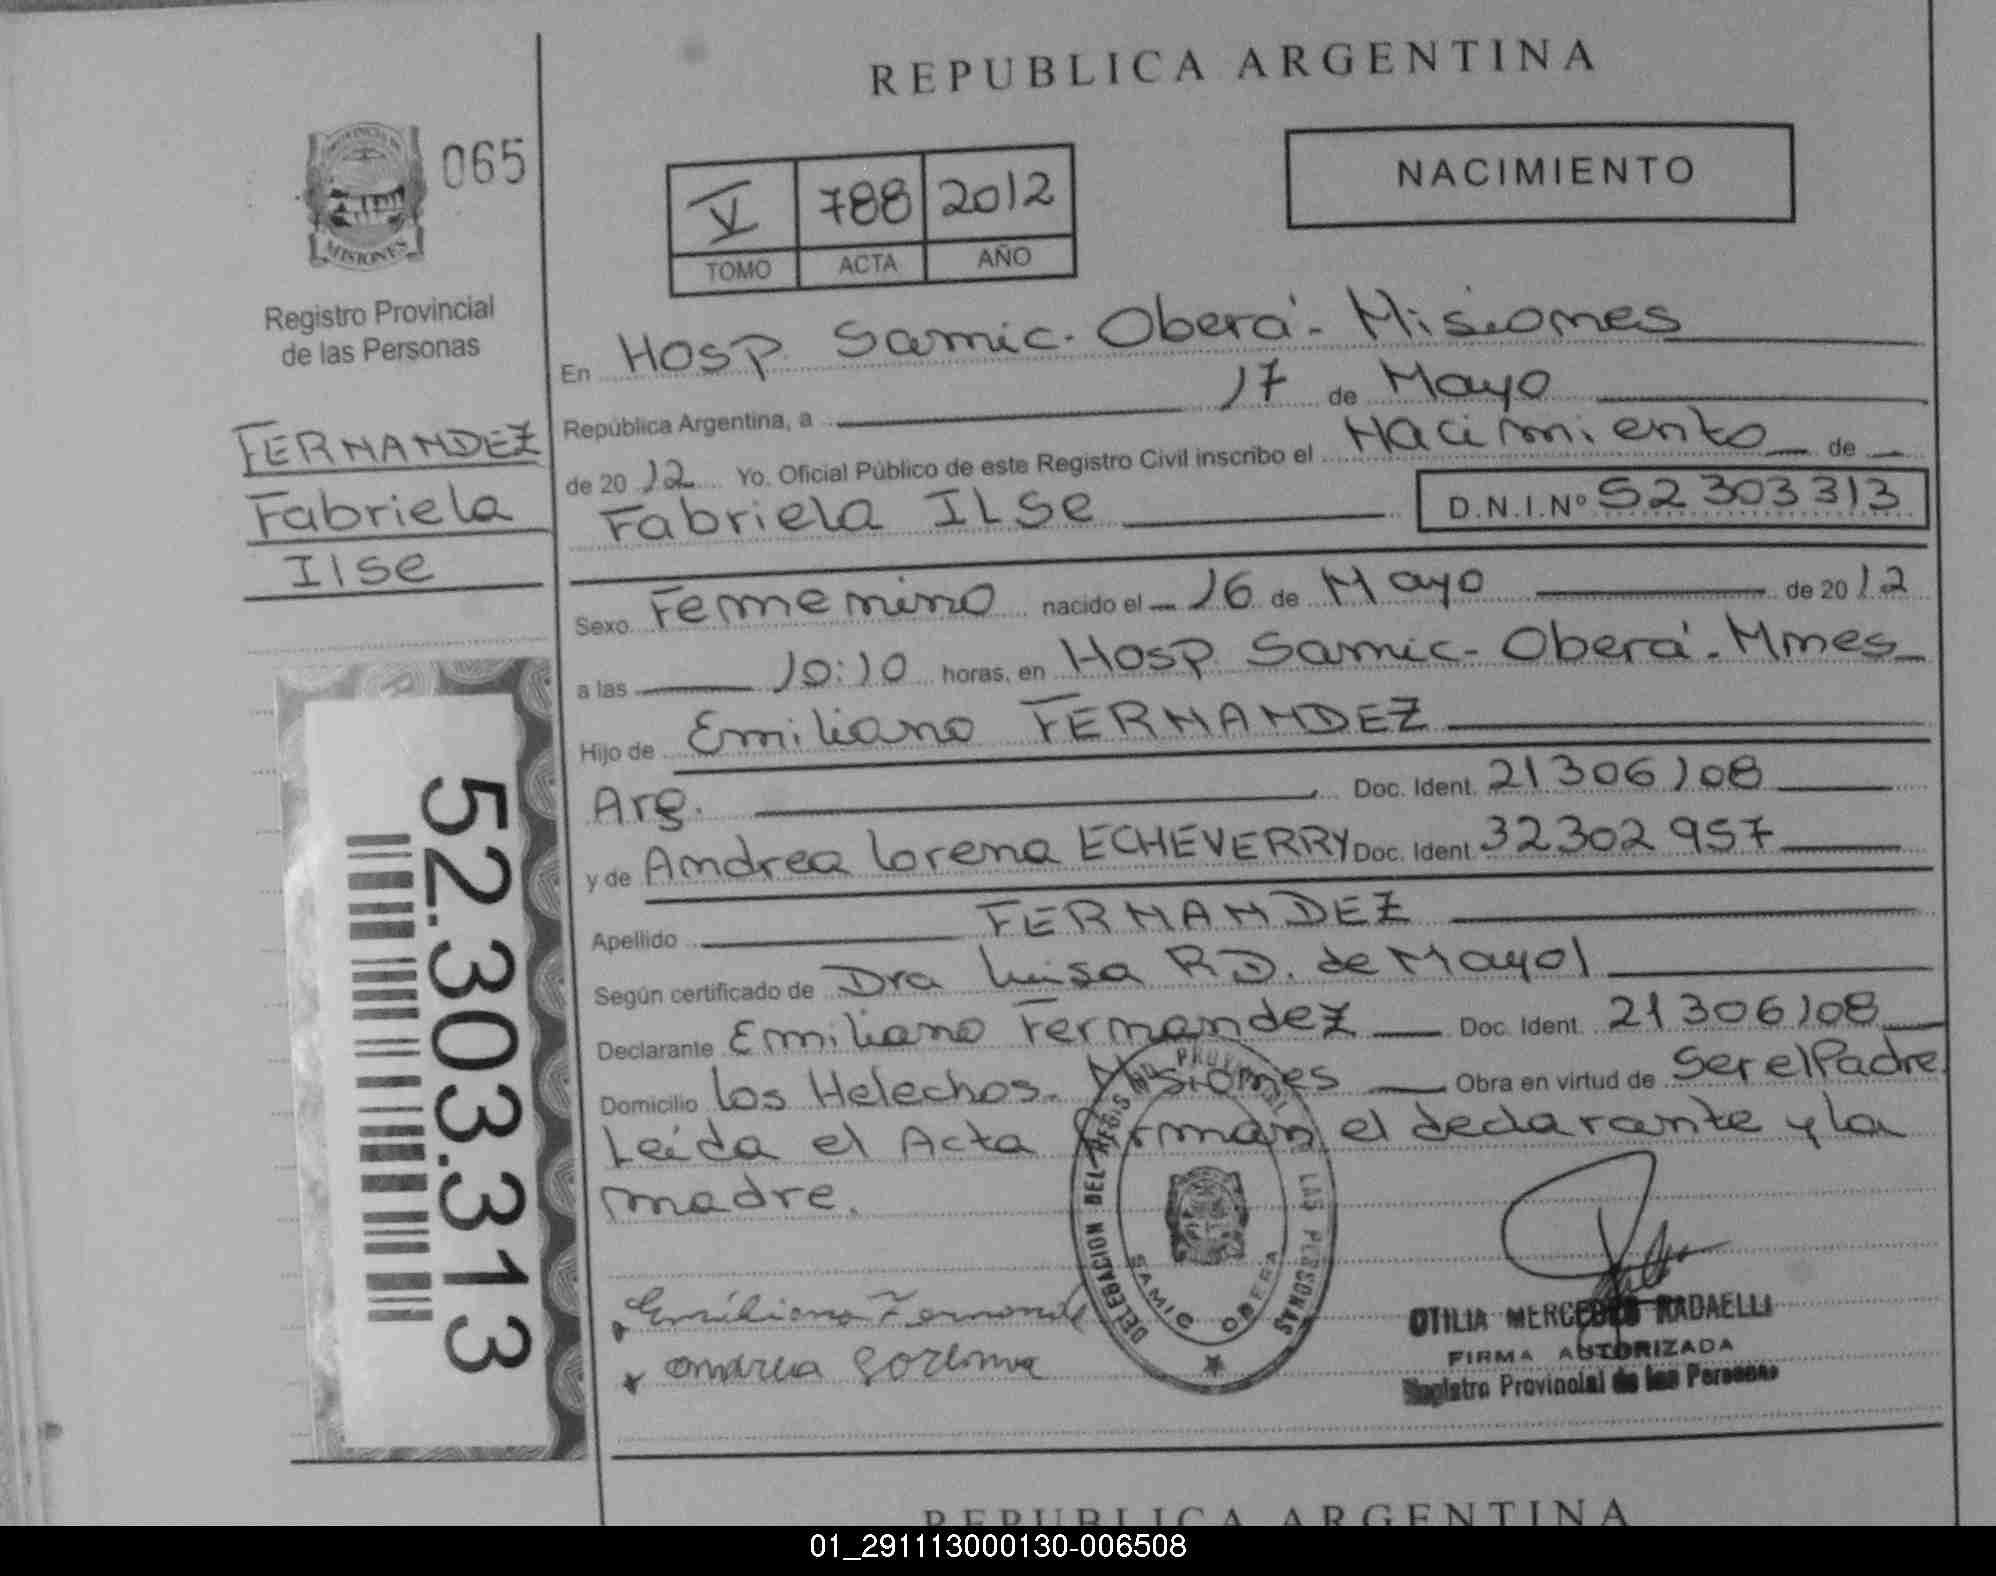 REPUBLICA ARGENTINA
065
PROVINCIA DE
MISIONES
Registro Provincial
de las Personas
FERNANDEZ
Fabriela
Ilse
52.303.313
V 788 2012
TOMO ACTA AÑO
NACIMIENTO
En Hosp. Samic. Oberá. Misiones
República Argentina, a 17 de Mayo
de 2012 Yo. Oficial Público de este Registro Civil inscribo el Nacimiento de
Fabriela Ilse D.N.I.Nº 52 303 313
Sexo Femenino nacido el 16 de Mayo de 2012
a las 10:10 horas, en Hosp. Samic. Oberá. Mnes
Hijo de Emiliano FERNANDEZ
Arg. Doc. Ident. 21 306 108
y de Andrea Lorena ECHEVERRY Doc. Ident. 32 302 957
Apellido FERNANDEZ
Según certificado de Dra Luisa R.D. de Mayol
Declarante Emiliano Fernandez Doc. Ident. 21 306 108
Domicilio Los Helechos. Misiones Obra en virtud de Ser el Padre.
Leída el Acta firman el declarante y la
madre.
DELEGACION DEL REGISTRO PROVINCIAL DE LAS PERSONAS
SAMIC OBERA
Emiliano Fernandez
Andrea Lorena
OTILIA MERCEDES RADAELLI
FIRMA AUTORIZADA
Registro Provincial de las Personas
REPUBLICA ARGENTINA
01_291113000130-006508